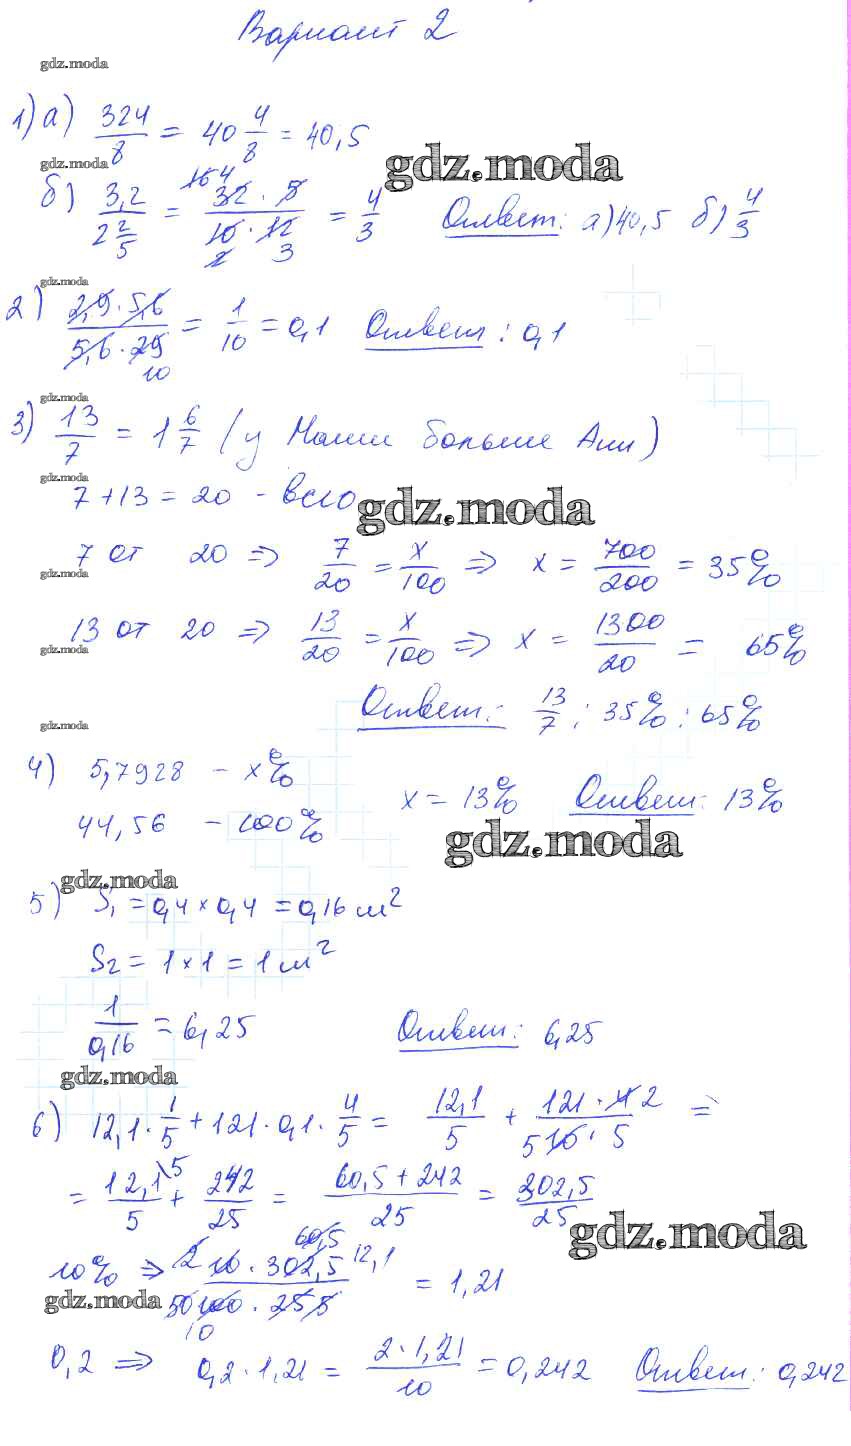 Вариант 2
gdz.moda
1) а) 324/8 = 40 4/8 = 40,5
gdz.moda
gdz.moda
б) 3,2 / 2 2/5 = 32 · 5 / 10 · 12 = 4/3 Ответ: а) 40,5 б) 4/3
gdz.moda
2) 2,9 · 5,6 / 5,6 · 29 = 1/10 = 0,1 Ответ: 0,1
gdz.moda
3) 13/7 = 1 6/7 (у Маши больше Ани)
gdz.moda
7 + 13 = 20 - всего
gdz.moda
7 от 20 => 7/20 = x/100 => x = 700/200 = 35%
gdz.moda
13 от 20 => 13/20 = x/100 => x = 1300/20 = 65%
gdz.moda
Ответ: 13/7; 35%; 65%
gdz.moda
4) 5,7928 - x%
44,56 - 100% x = 13% Ответ: 13%
gdz.moda
gdz.moda
5) S1 = 0,4 × 0,4 = 0,16 м²
S2 = 1 × 1 = 1 м²
1/0,16 = 6,25 Ответ: 6,25
gdz.moda
6) 12,1 · 1/5 + 121 · 0,1 · 4/5 = 12,1/5 + 121 · 4 2 / 5 10 · 5 =
= 12,1\5 / 5 + 242/25 = 60,5 + 242 / 25 = 302,5/25
gdz.moda
10% => 2 10 · 302,5 60,5 12,1 / 50 100 10 · 25 5 = 1,21
gdz.moda
0,2 => 0,2 · 1,21 = 2 · 1,21 / 10 = 0,242 Ответ: 0,242